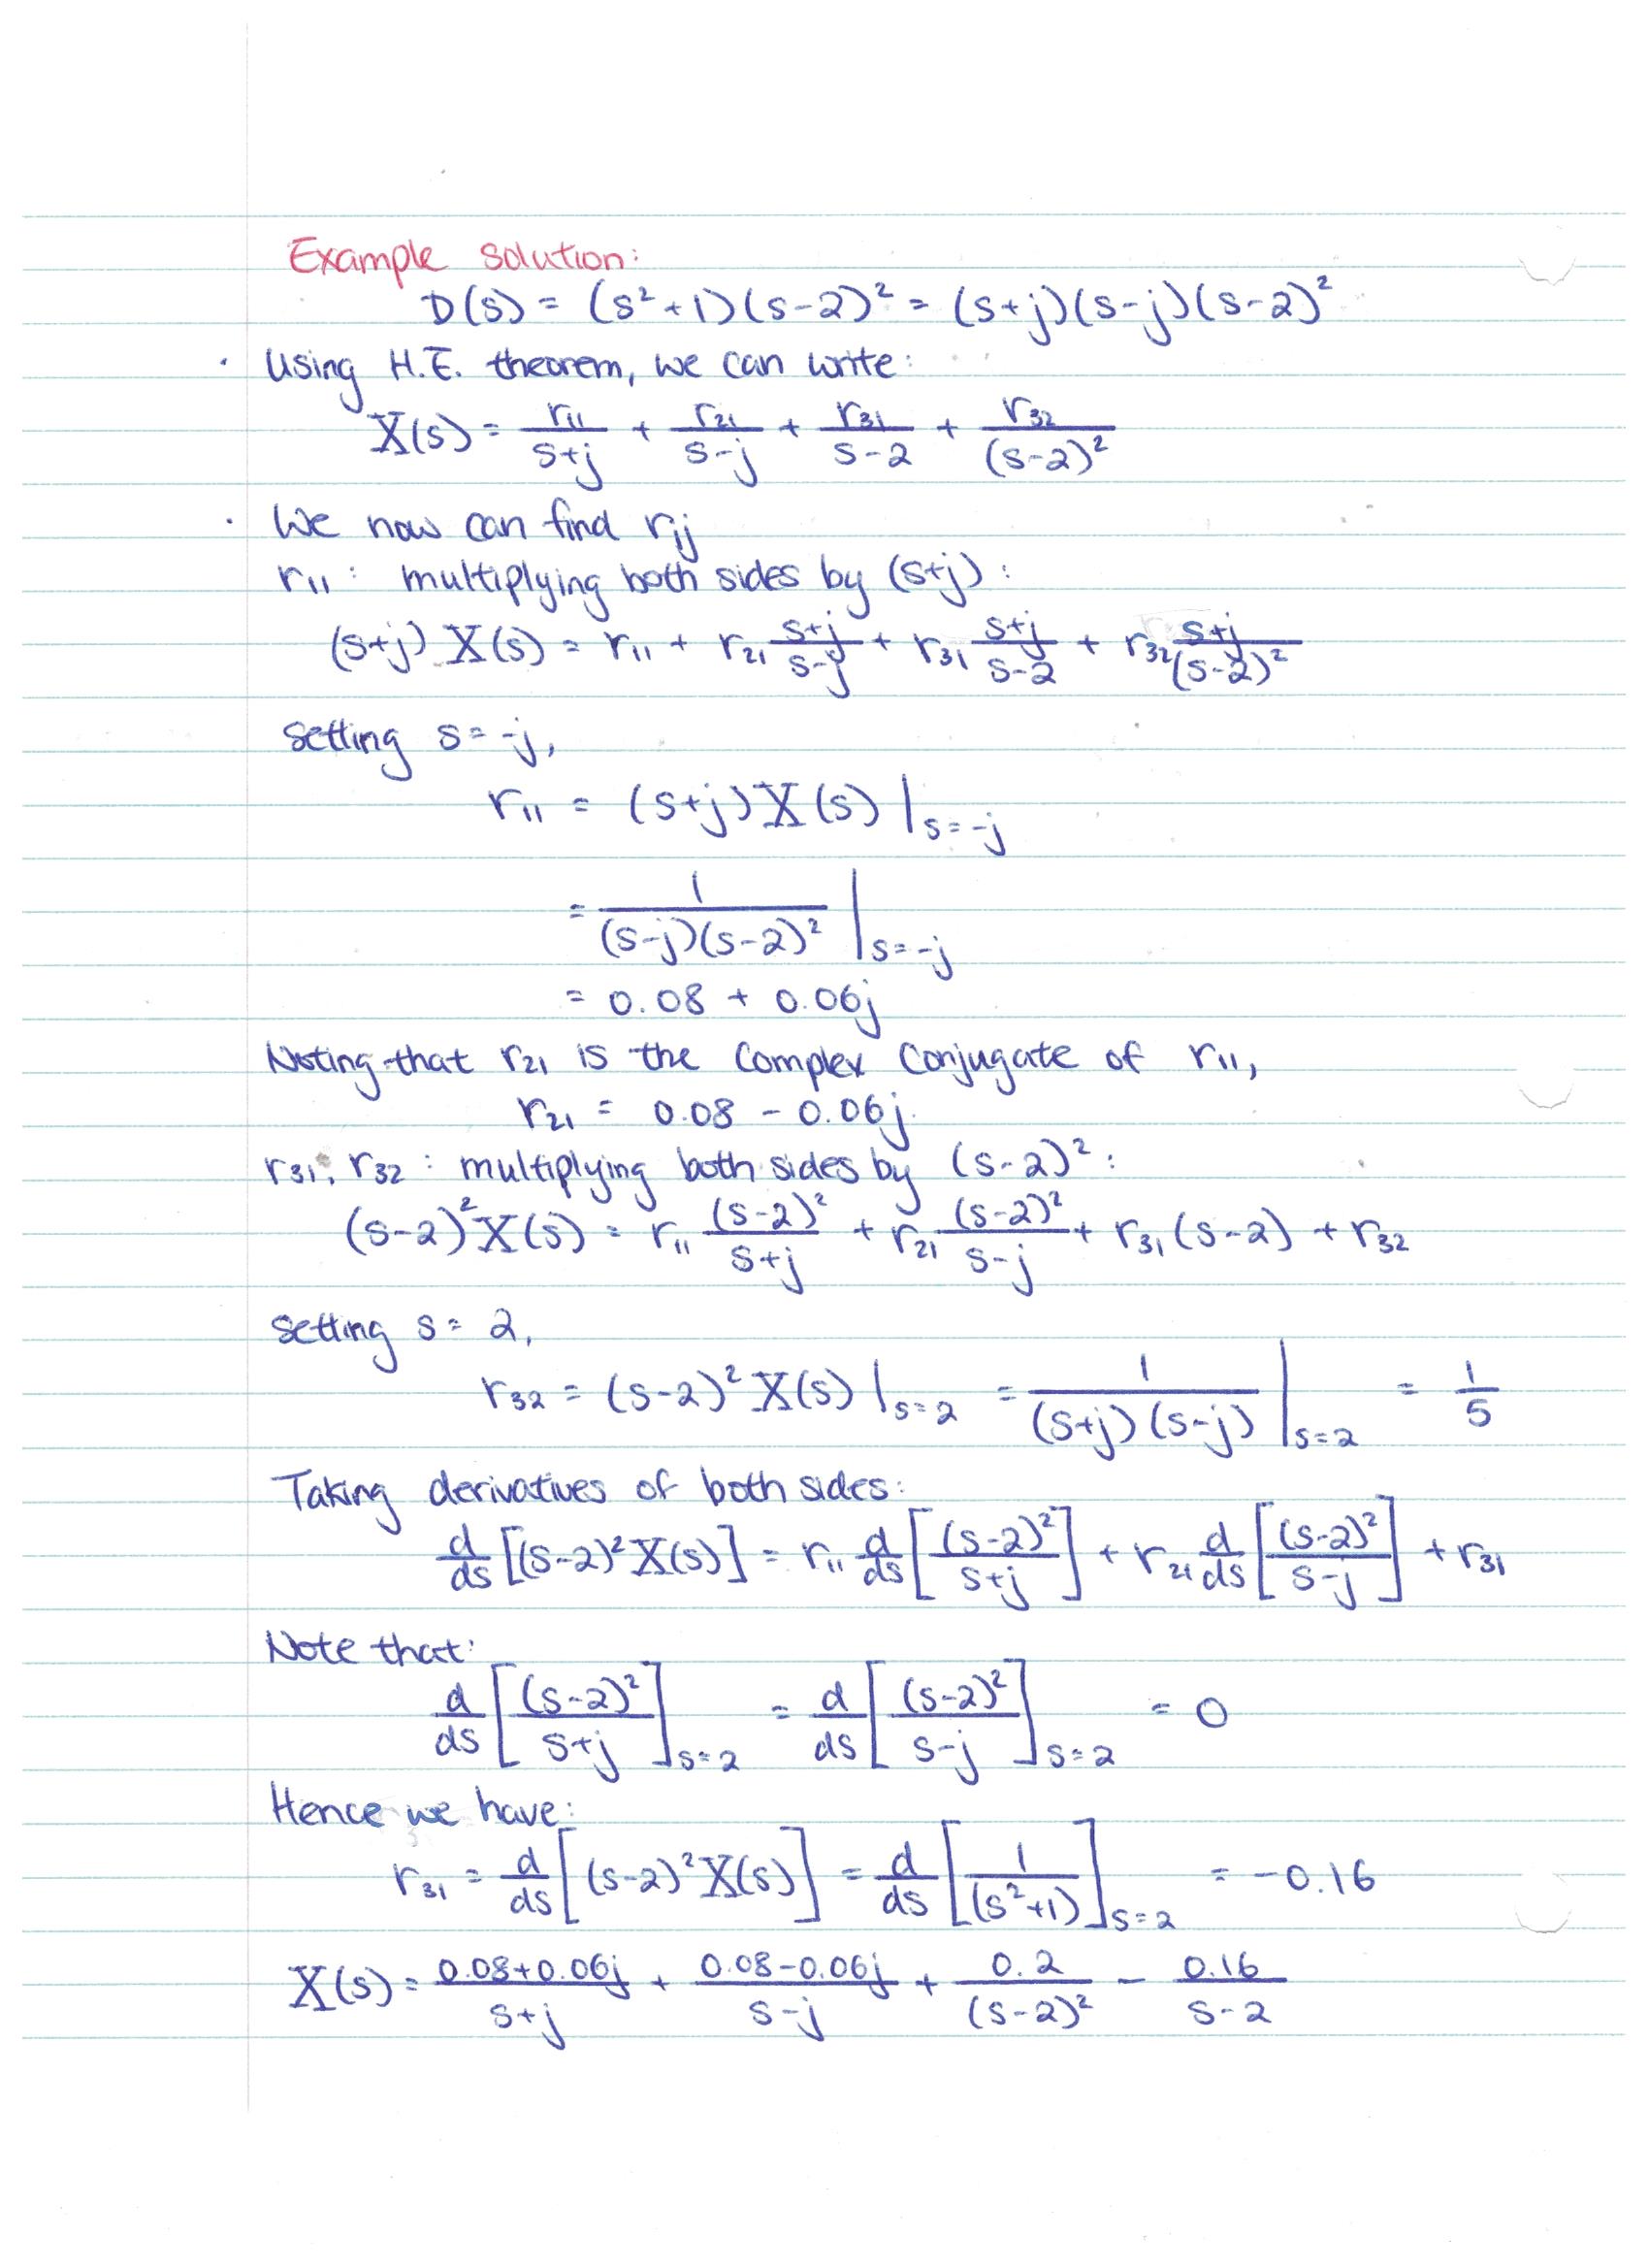 Example solution:
D(s) = (s²+1)(s-2)² = (s+j)(s-j)(s-2)²
· Using H.E. theorem, we can write:
X(s) = r₁₁/(s+j) + r₂₁/(s-j) + r₃₁/(s-2) + r₃₂/(s-2)²
· We now can find rᵢⱼ
r₁₁: multiplying both sides by (s+j):
(s+j) X(s) = r₁₁ + r₂₁ (s+j)/(s-j) + r₃₁ (s+j)/(s-2) + r₃₂ (s+j)/(s-2)²
Setting s = -j,
r₁₁ = (s+j)X(s) |s=-j
= 1/((s-j)(s-2)²) |s=-j
= 0.08 + 0.06j
Noting that r₂₁ is the complex conjugate of r₁₁,
r₂₁ = 0.08 - 0.06j.
r₃₁, r₃₂: multiplying both sides by (s-2)²:
(s-2)²X(s) = r₁₁ (s-2)²/(s+j) + r₂₁ (s-2)²/(s-j) + r₃₁(s-2) + r₃₂
Setting s = 2,
r₃₂ = (s-2)² X(s) |s=2 = 1/((s+j)(s-j)) |s=2 = 1/5
Taking derivatives of both sides:
d/ds [(s-2)² X(s)] = r₁₁ d/ds [(s-2)²/(s+j)] + r₂₁ d/ds [(s-2)²/(s-j)] + r₃₁
Note that:
d/ds [(s-2)²/(s+j)]s=2 = d/ds [(s-2)²/(s-j)]s=2 = 0
Hence we have:
r₃₁ = d/ds [(s-2)²X(s)] = d/ds [1/(s²+1)]s=2 = -0.16
X(s) = (0.08+0.06j)/(s+j) + (0.08-0.06j)/(s-j) + 0.2/(s-2)² - 0.16/(s-2)